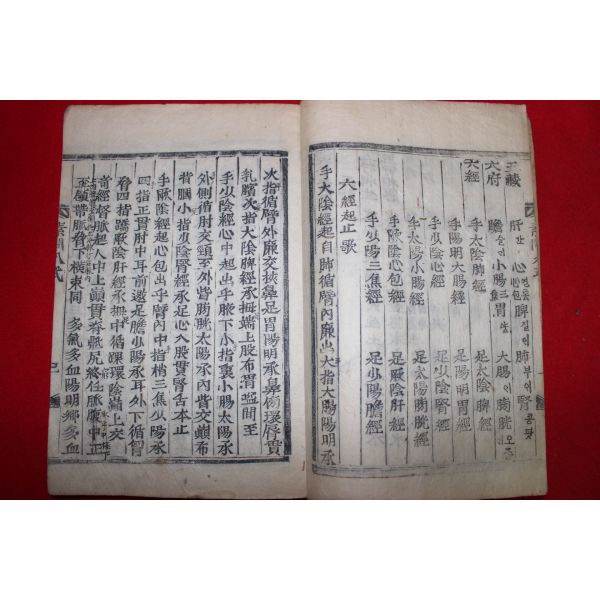 五臟 肝간 心 心包 脾 肺부 腎콩팟
六府 膽 小腸 三焦 胃 大腸 膀胱
六經
手太陰肺經 足太陰脾經
手陽明大腸經 足陽明胃經
手少陰心經 足少陰腎經
手太陽小腸經 足太陽膀胱經
手厥陰心包經 足厥陰肝經
手少陽三焦經 足少陽膽經
六經起止歌
手太陰經起自肺循臂內廉出大指大腸陽明承
次指循臂外廉交挾鼻足胃陽明承鼻 環唇貫
乳 次指太陰脾經承拇端上股布胃 間至
手少陰經心中起出手腋下小指裏小腸太陽承
外側循肘交頸至外眥膀胱太陽承內眥交巔布
背膕小指少陰腎經承足心入股貫腎舌本止
手厥陰經心包出手臂內中指稍三焦少陽承
四指正貫肘中耳前邊足膽少陽承耳外下循胷
脅四指 厥陰肝經承拇中循踝環陰巔上交
奇經督脈起人中上巔貫脊 尻終任脈 中正
至 帶脈脅下橫束同 多氣多血陽明鄉多血